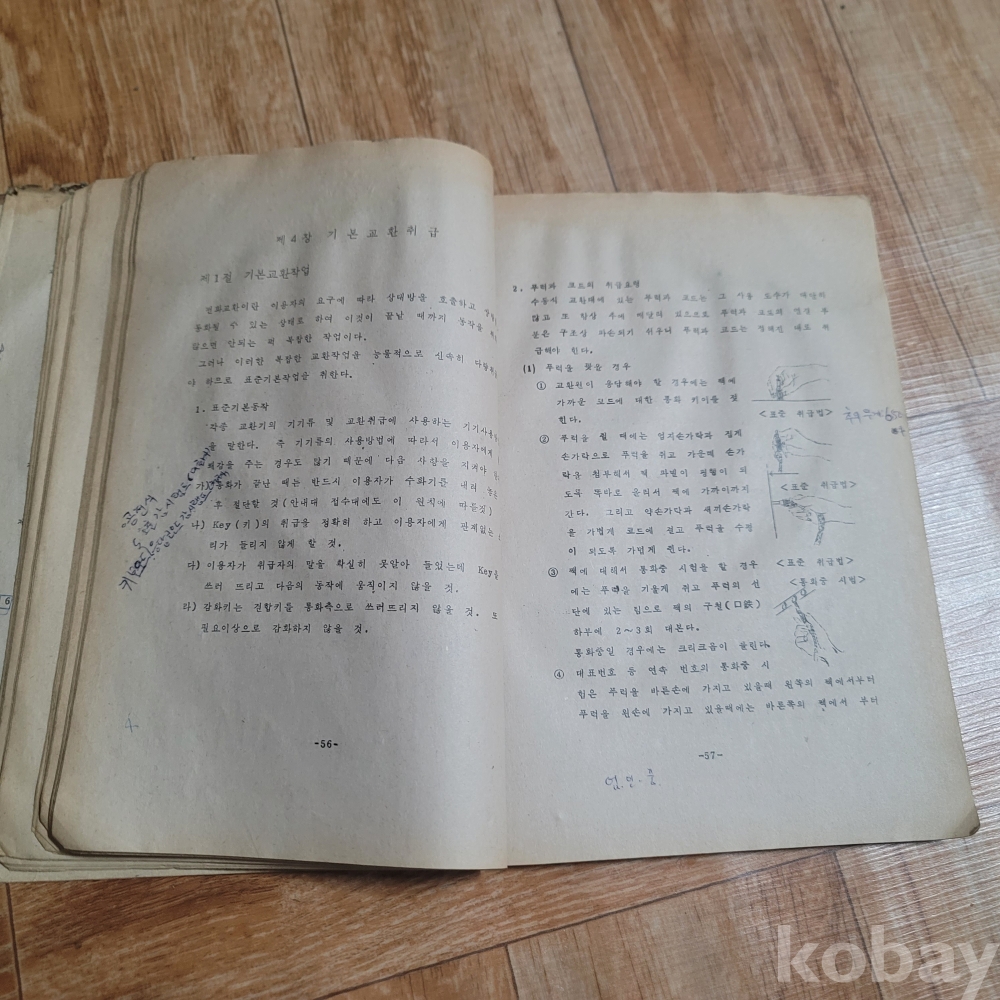 제4장 기본교환취급
제1절 기본교환작업
전화교환이란 이용자의 요구에 따라 상대방을 호출하고 상
통화될 수 있는 상태로 하여 이것이 끝날 때까지 동작을 취
않으면 안되는 퍽 복잡한 작업이다.
그러나 이러한 복잡한 교환작업을 능률적으로 신속히 다
야 하므로 표준기본작업을 취한다.
1. 표준기본동작
각종 교환기의 기기류 및 교환취급에 사용하는 기기사용
을 말한다. 즉 기기들의 사용방법에 따라서 이용자에게
쾌감을 주는 경우도 많기 때문에 다음 사항을 지켜야
가) 통화가 끝난 때는 반드시 이용자가 수화기를 내려 놓은
후 절단할 것 (안내대 접수대에도 이 원칙에 따를것)
나) Key(키)의 취급을 정확히 하고 이용자에게 관계없는
리가 들리지 않게 할 것.
다) 이용자가 취급자의 말을 확실히 못알아 들었는데 Key를
쓰러 뜨리고 다음의 동작에 움직이지 않을 것.
라) 감화키는 결합키를 통화측으로 쓰러뜨리지 않을 것. 또
필요이상으로 감화하지 않을 것.
-56-
2. 푸럭과 코드의 취급요령
수동식 교환대에 있는 푸럭과 코드는 그 사용 도수가 대단히
많고 또 항상 추에 매달려 있으므로 푸럭과 코드의 연결 부
분은 구조상 파손되기 쉬우니 푸럭과 코드는 정해진 대로 취
급해야 한다.
(1) 푸럭을 꽂을 경우
① 교환원이 응답해야 할 경우에는 잭에
가까운 코드에 대한 통화 키이를 젖
힌다.
<표준 취급법>
② 푸럭을 뺄 때에는 엄지손가락과 집게
손가락으로 푸럭을 쥐고 가운데 손가
락을 첨부해서 잭 차벨이 평형이 되
<표준 취급법>
도록 똑바로 올려서 잭에 가까이까지
간다. 그리고 약손가락과 새끼손가락
은 가볍게 코드에 걸고 푸럭을 수평
이 되도록 가볍게 쥔다.
③ 잭에 대해서 통화중 시험을 할 경우
<표준 취급법>
에는 푸럭을 기울게 쥐고 푸럭의 선
<통화중 시험>
단에 있는 팁으로 잭의 구철(口鉄)
하부에 2~3회 대본다.
통화중일 경우에는 크리크음이 들린다.
④ 대표번호 등 연속 번호의 통화중 시
험은 푸럭을 바른손에 가지고 있을때 왼쪽의 잭에서부터
푸럭을 왼손에 가지고 있을때에는 바른쪽의 잭에서 부터
-57-
kobay